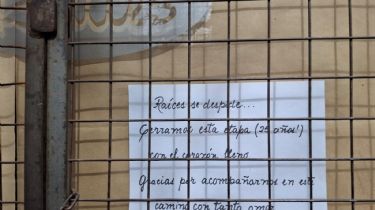 Raíces se despide...
Cerramos esta etapa (25 años!)
con el corazón lleno
Gracias por acompañarnos en este
camino con tanto amor